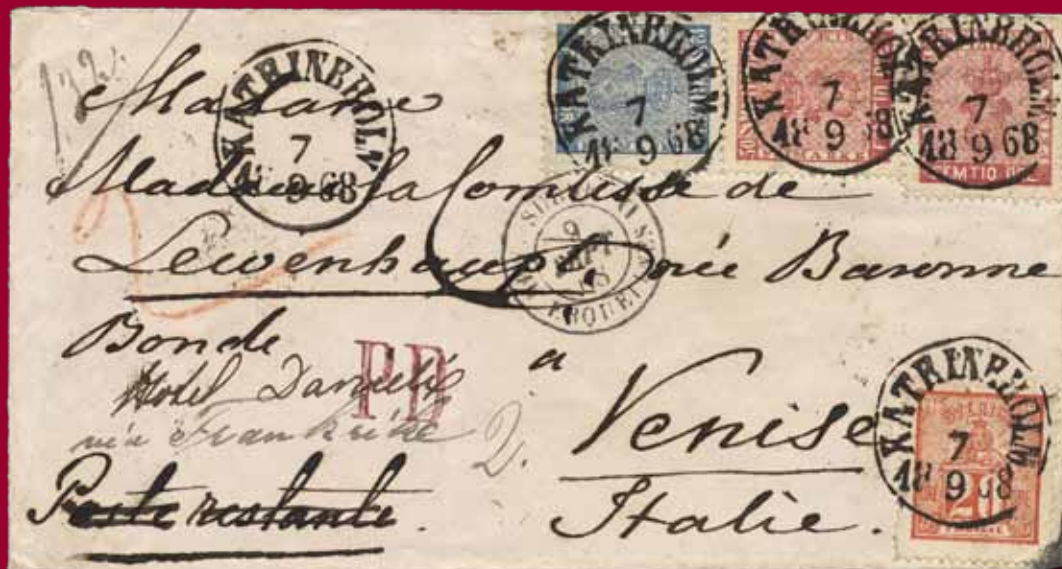 132.
KATRINEHOLM
7
18 9 68
KATRINEHOLM
7
18 9 68
KATRINEHOLM
7
18 9 68
KATRINEHOLM
7
18 9 68
FEMTIO ÖRE
Madame
Madame la Comtesse de
Lewenhaupt née Baronne
Bonde
a
Hotel Danieli
via Frankrike
PD
2.
Venise
Poste restante.
Italie.
9
SEPT
68
ERQUEL
KATRINEHOLM
7
18 9 68
SVERIGE
20